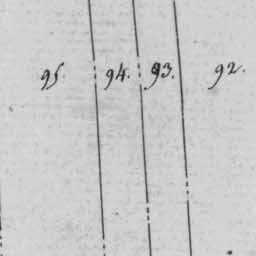 95. 94. 93. 92.